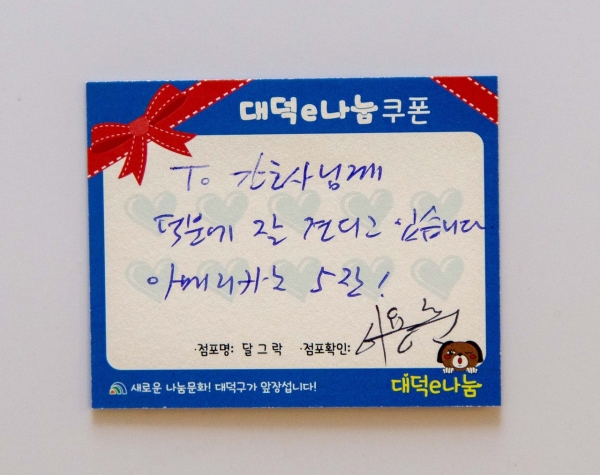 대덕e나눔 쿠폰
To 간호사님께
덕분에 잘 견디고 있습니다
아메리카노 5잔!
·점포명: 달그락 ·점포확인:
새로운 나눔문화! 대덕구가 앞장섭니다!
대덕e나눔